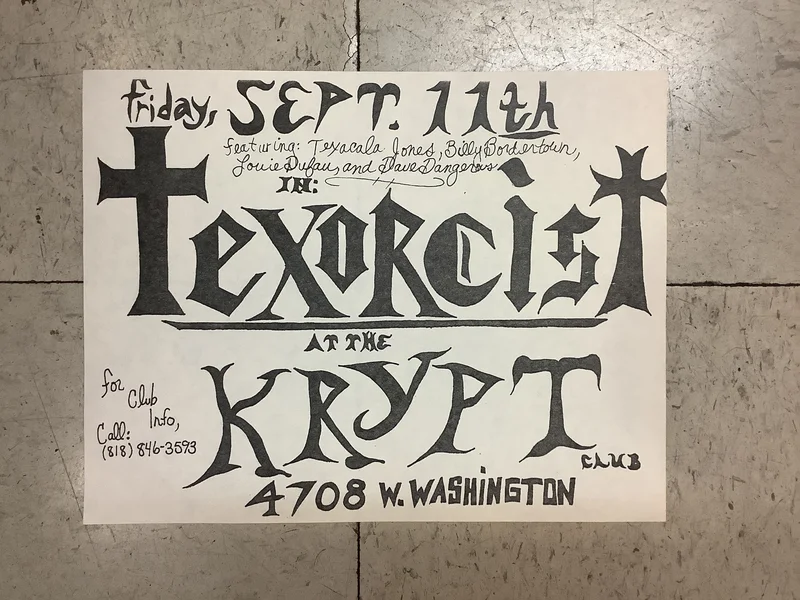 friday, SEPT. 11th
featuring: Texacala Jones, Billy Bordertown,
Louie Dufau, and Dave Dangerous
IN:
texorcist
AT THE
KRYPT
CLUB
for
Club
Info,
Call:
(818) 846-3593
4708 W. WASHINGTON